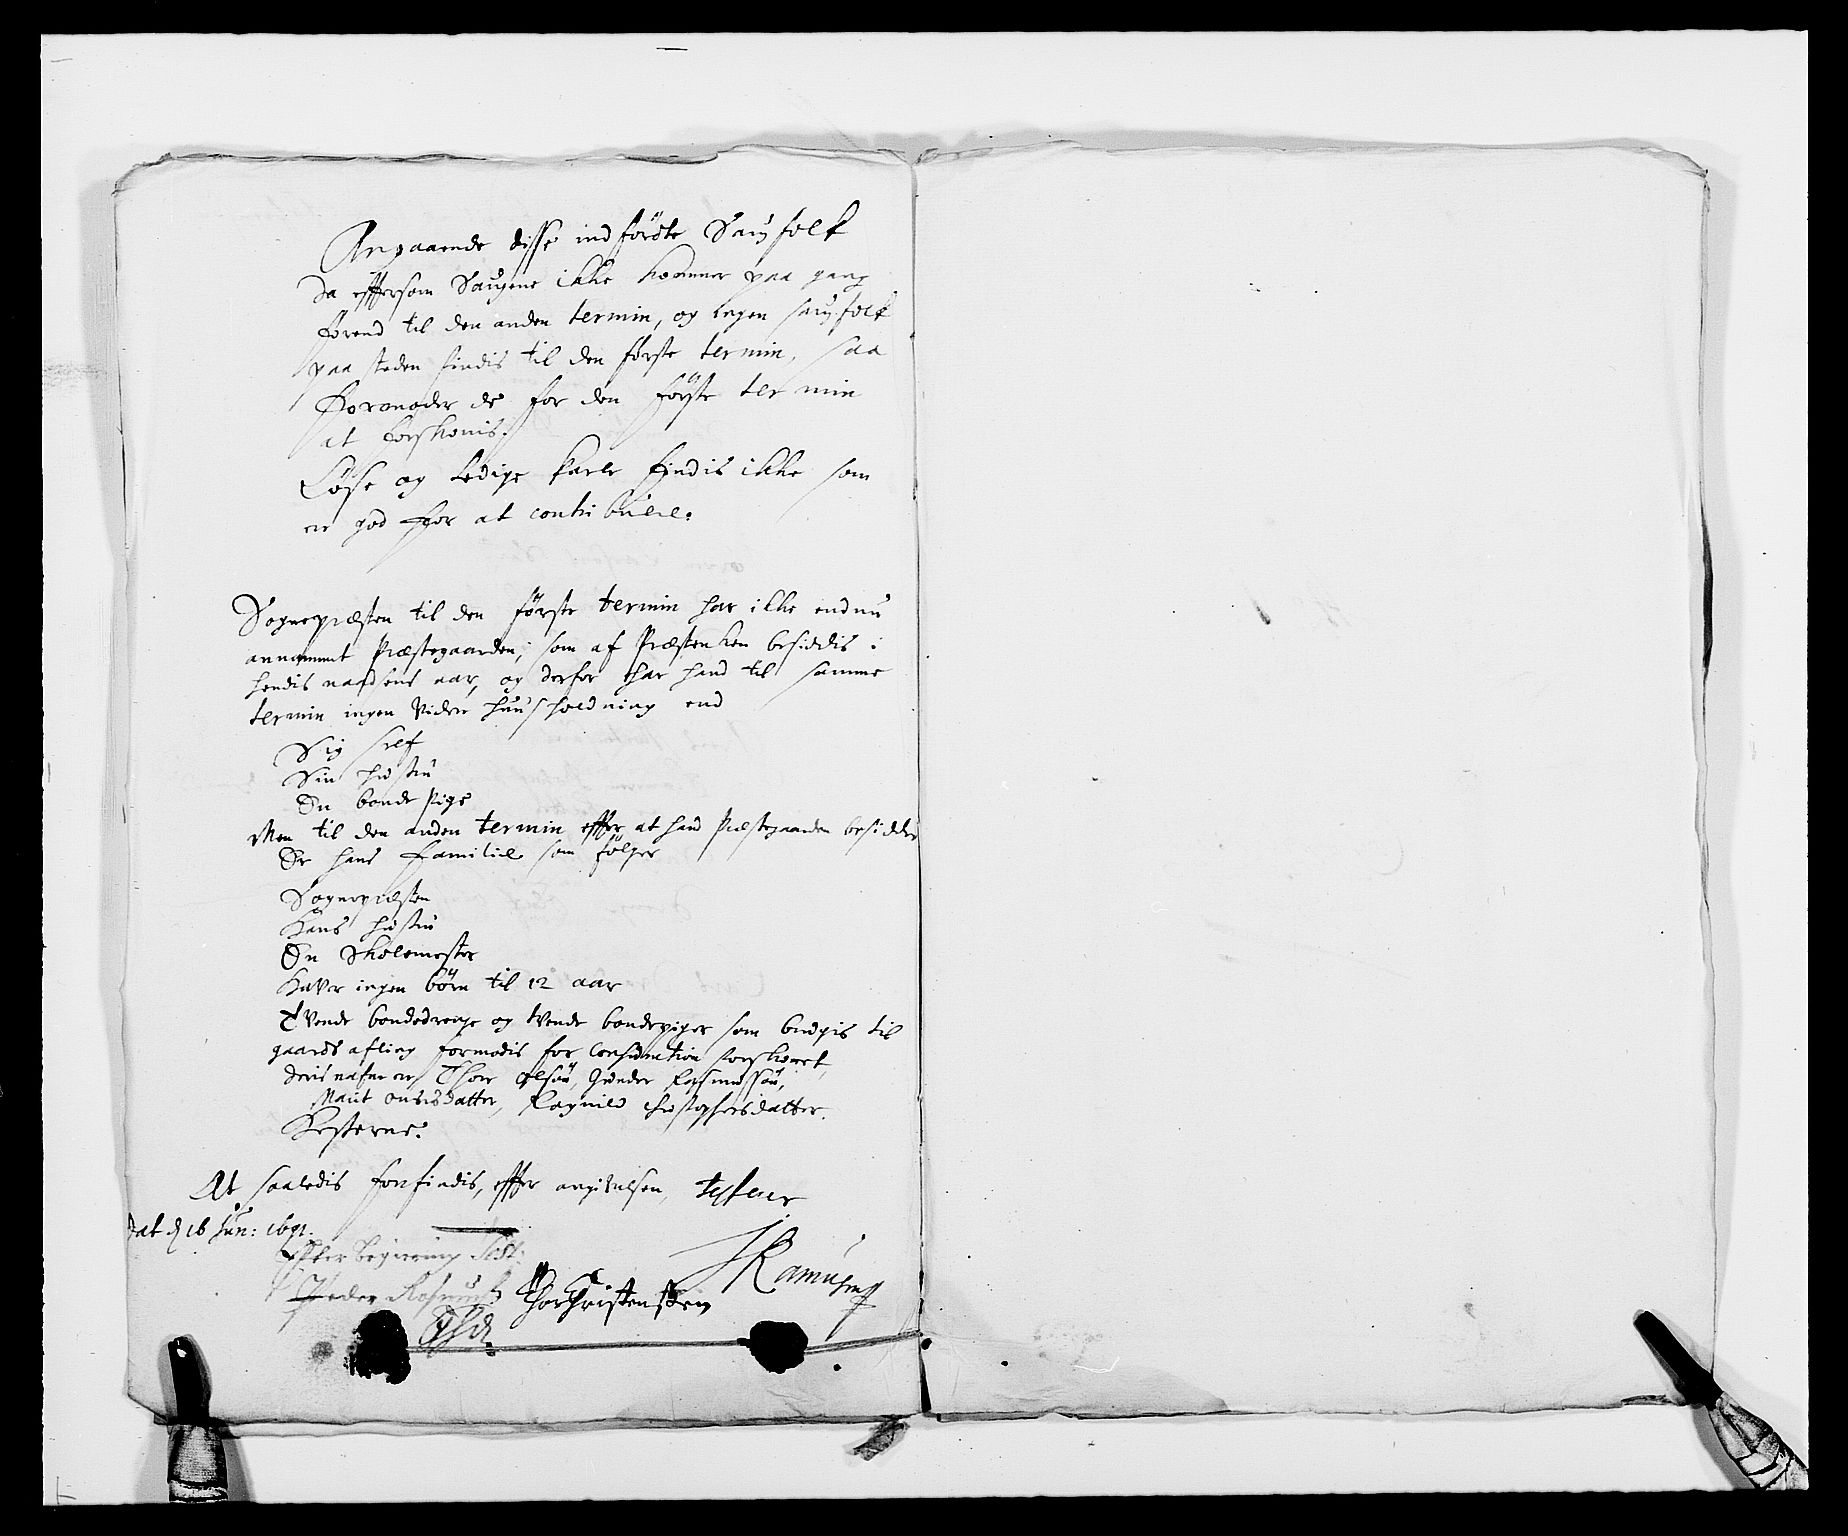 Angaaende disse indförte Saugfolk
da effersom Saugene ikke kommer paa gang
forend til den anden termin, og ingen saugfolk
paa steden findis til den förste termin, saa
formoder de for den förste termin
at forskonis.
Löse og Ledige karle findis ikke som
er god for at contribuere.
Sognepræsten til den förste termin har ikke endnu
annammet Præstegaarden, som af Præstenken besiddis i
hendis naadsens aar, og derfor har hand til samme
termin ingen Videre huusholdning end
Sig self
Sin hustru
En bonde Pige
Men til den anden termin effter at hand Præstegaarden besidder
Er hans familie som fölger
Sognepræsten
Hans hustru
En Skolemester
Haver ingen börn til 12 aar
Tvende bondedrenge og tvende bondepiger som brugis til
gaards afling formodis for Consumtion forskonet,
deris nafne er Thore Olsön, Gunder Rasmussön,
Marit datter, Ragnild Christophersdatter.
Resterne.
At saaledis forfindis, effter angivelsen, testerer
Dat d 16 Jun: 1691.
Effter Begiering Test:
Peder Rasmus
Thor Christensken
JRamusmp